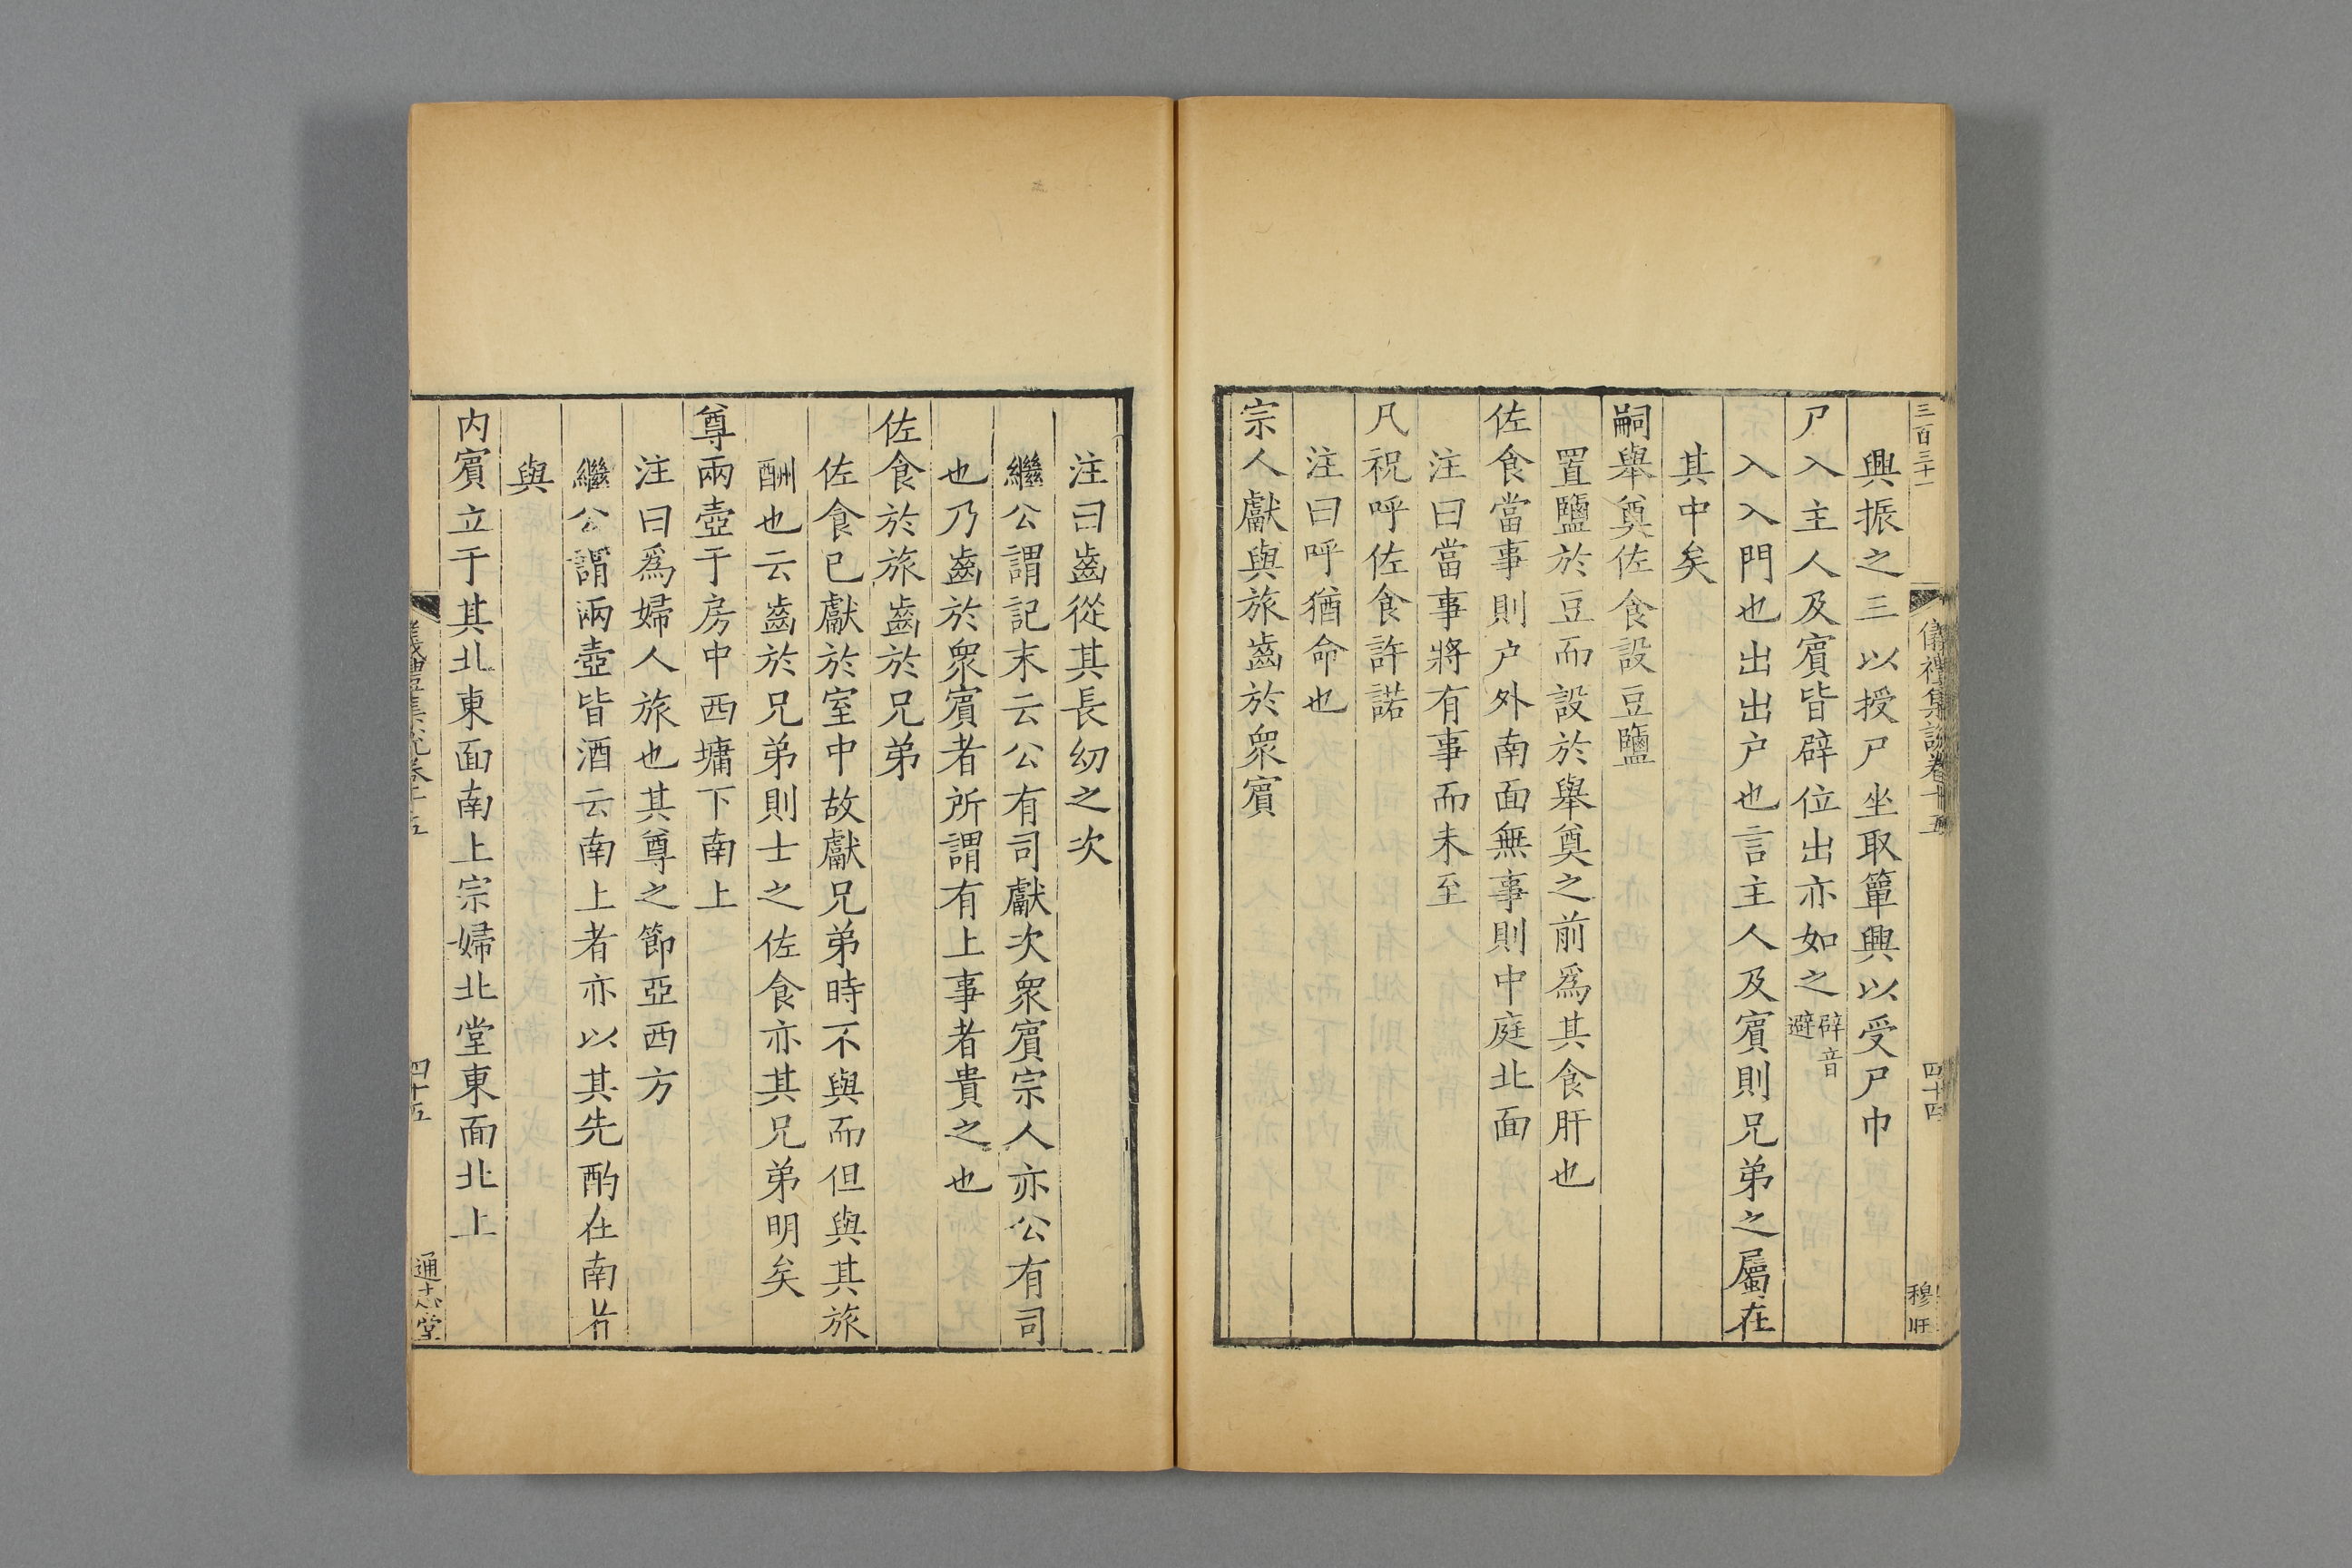 三百三十一
儀禮集說卷十五
四十四
穆
興振之三以授尸坐取簞興以受尸巾
尸入主人及賓皆辟位出亦如之辟音避
入入門也出出戶也言主人及賓則兄弟之屬在
其中矣
嗣舉奠佐食設豆鹽
置鹽於豆而設於舉奠之前爲其食肝也
佐食當事則戶外南面無事則中庭北面
注曰當事將有事而未至
凡祝呼佐食許諾
注曰呼猶命也
宗人獻與旅齒於衆賓
注曰齒從其長幼之次
繼公謂記末云公有司獻次衆賓宗人亦公有司
也乃齒於衆賓者所謂有上事者貴之也
佐食於旅齒於兄弟
佐食已獻於室中故獻兄弟時不與而但與其旅
酬也云齒於兄弟則士之佐食亦其兄弟明矣
尊兩壺于房中西墉下南上
注曰爲婦人旅也其尊之節亞西方
繼公謂兩壺皆酒云南上者亦以其先酌在南者
與
内賓立于其北東面南上宗婦北堂東面北上
儀禮集說卷十五
四十五
通志堂